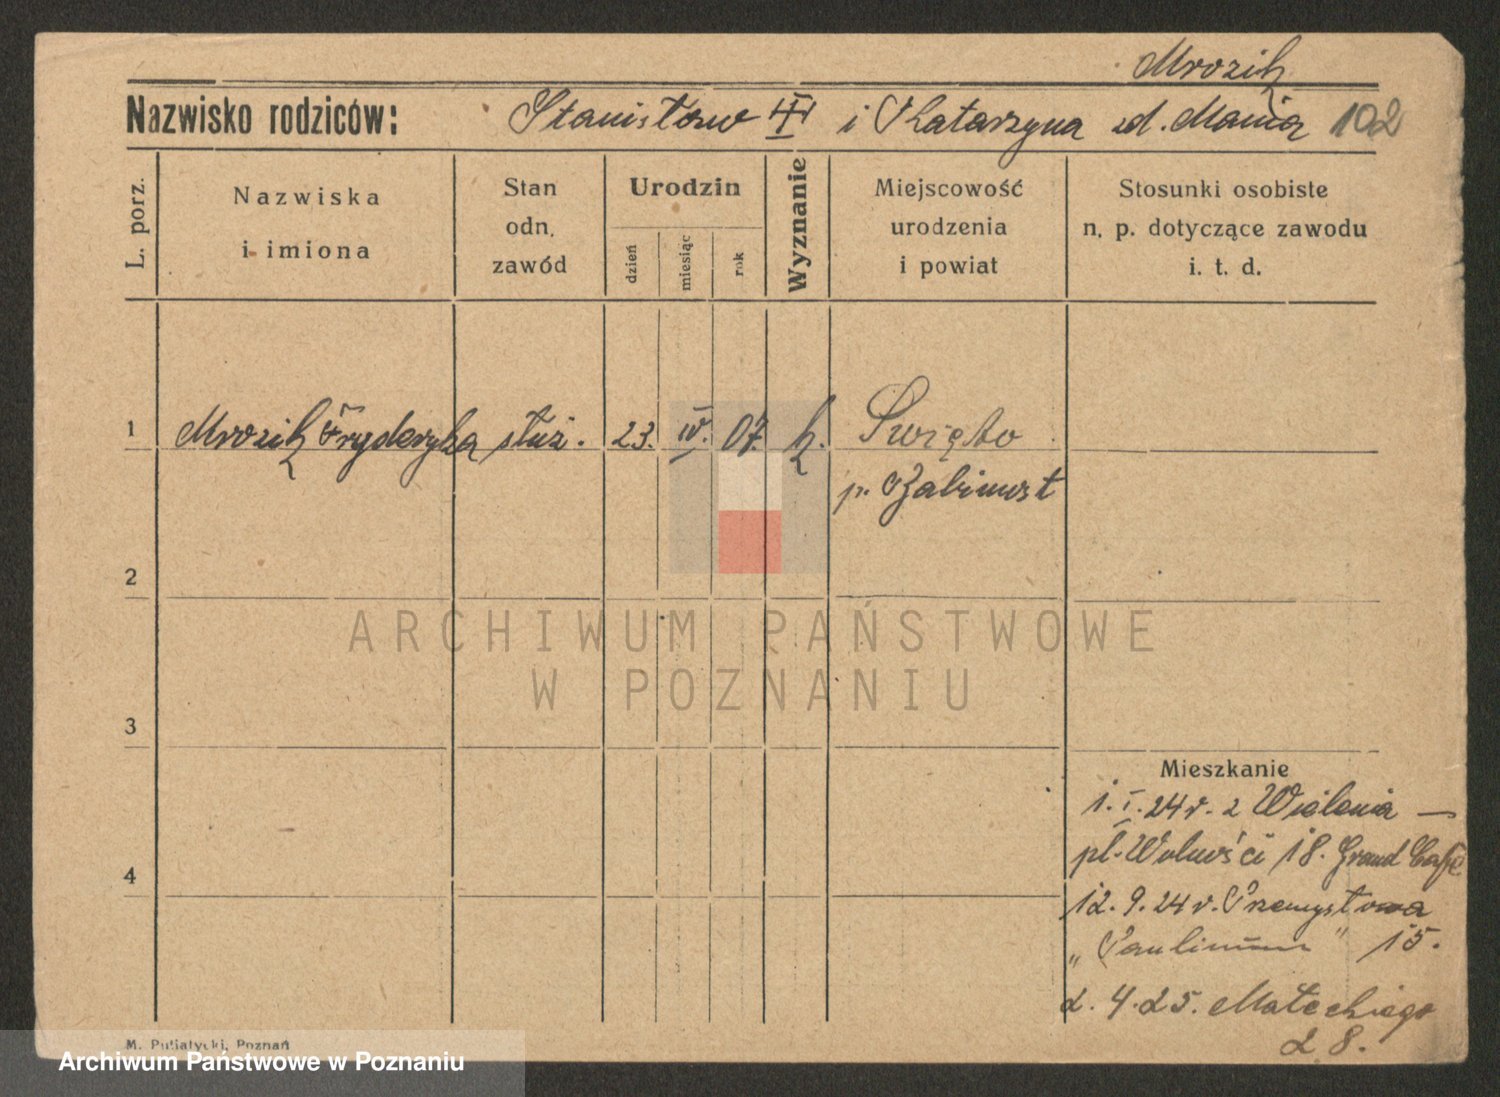 Mrozik
Nazwisko rodziców: Stanisław i Katarzyna zd. Mania 102
L. porz.
Nazwiska
i imiona
Stan
odn.
zawód
Urodzin
dzień
miesiąc
rok
Wyznanie
Miejscowość
urodzenia
i powiat
Stosunki osobiste
n. p. dotyczące zawodu
i. t. d.
1 Mrozik Fryderyka służ. 23. IV. 07. k. Święto
p. Babimost
2
3
4
Mieszkanie
1. I. 24 r. z Wielenia —
pl. Wolności 18. Grand Café
12. 9. 24 r. Przemysłowa
„Paulinum" 15.
2. 4. 25. Małeckiego
28.
M. Putiatycki, Poznań
ARCHIWUM PAŃSTWOWE
W POZNANIU
Archiwum Państwowe w Poznaniu